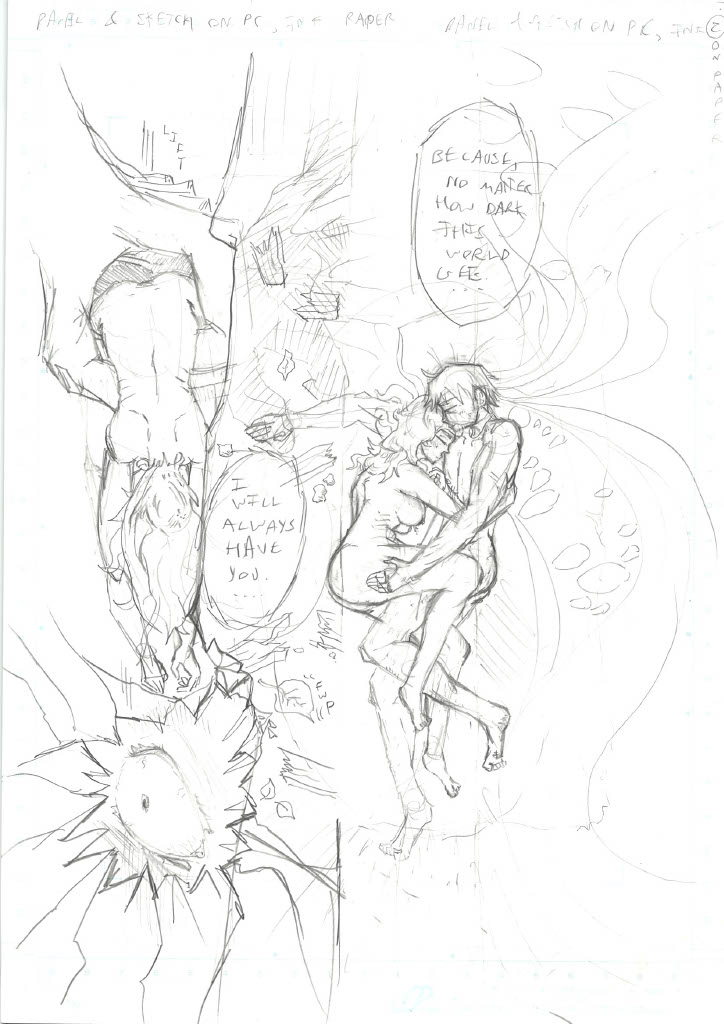 PANEL & SKETCH ON PC, INK PAPER
PANEL & SKETCH ON PC, INK
ON PAPER
LIFT
BECAUSE,
NO MATTER
HOW DARK
THIS
WORLD
GETS
....
I
WILL
ALWAYS
HAVE
YOU.
....